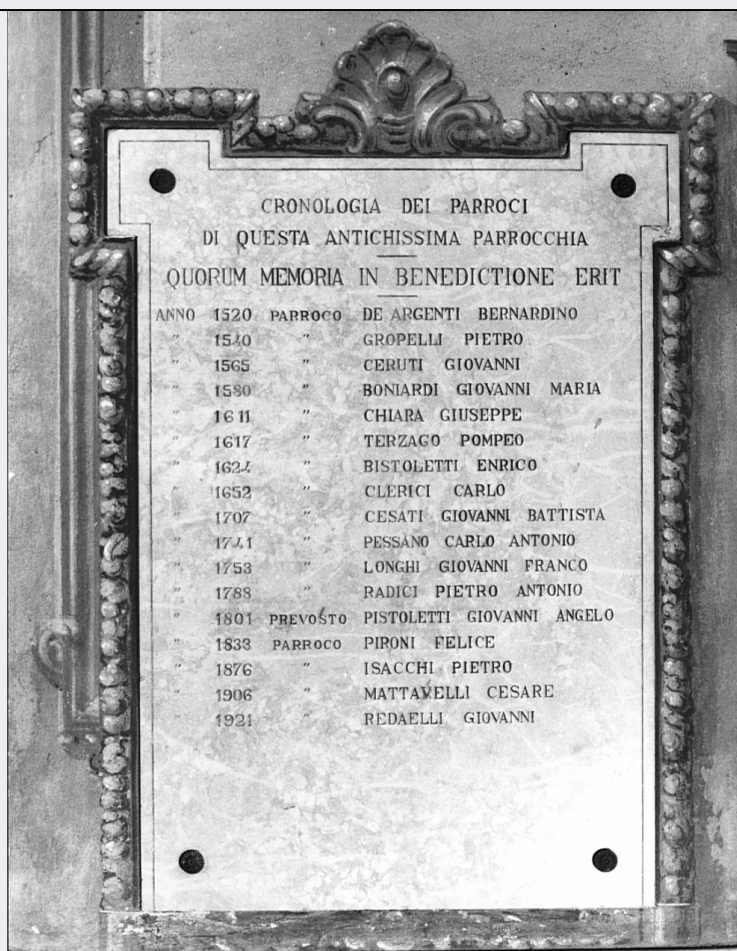 CRONOLOGIA DEI PARROCI
DI QUESTA ANTICHISSIMA PARROCCHIA
QUORUM MEMORIA IN BENEDICTIONE ERIT
ANNO 1520 PARROCO DE ARGENTI BERNARDINO
" 1540 " GROPELLI PIETRO
" 1565 " CERUTI GIOVANNI
" 1580 " BONIARDI GIOVANNI MARIA
" 1611 " CHIARA GIUSEPPE
" 1617 " TERZAGO POMPEO
" 1624 " BISTOLETTI ENRICO
" 1652 " CLERICI CARLO
" 1707 " CESATI GIOVANNI BATTISTA
" 1741 " PESSANO CARLO ANTONIO
" 1753 " LONGHI GIOVANNI FRANCO
" 1788 " RADICI PIETRO ANTONIO
" 1801 PREVOSTO PISTOLETTI GIOVANNI ANGELO
" 1833 PARROCO PIRONI FELICE
" 1876 " ISACCHI PIETRO
" 1906 " MATTAVELLI CESARE
" 1921 " REDAELLI GIOVANNI